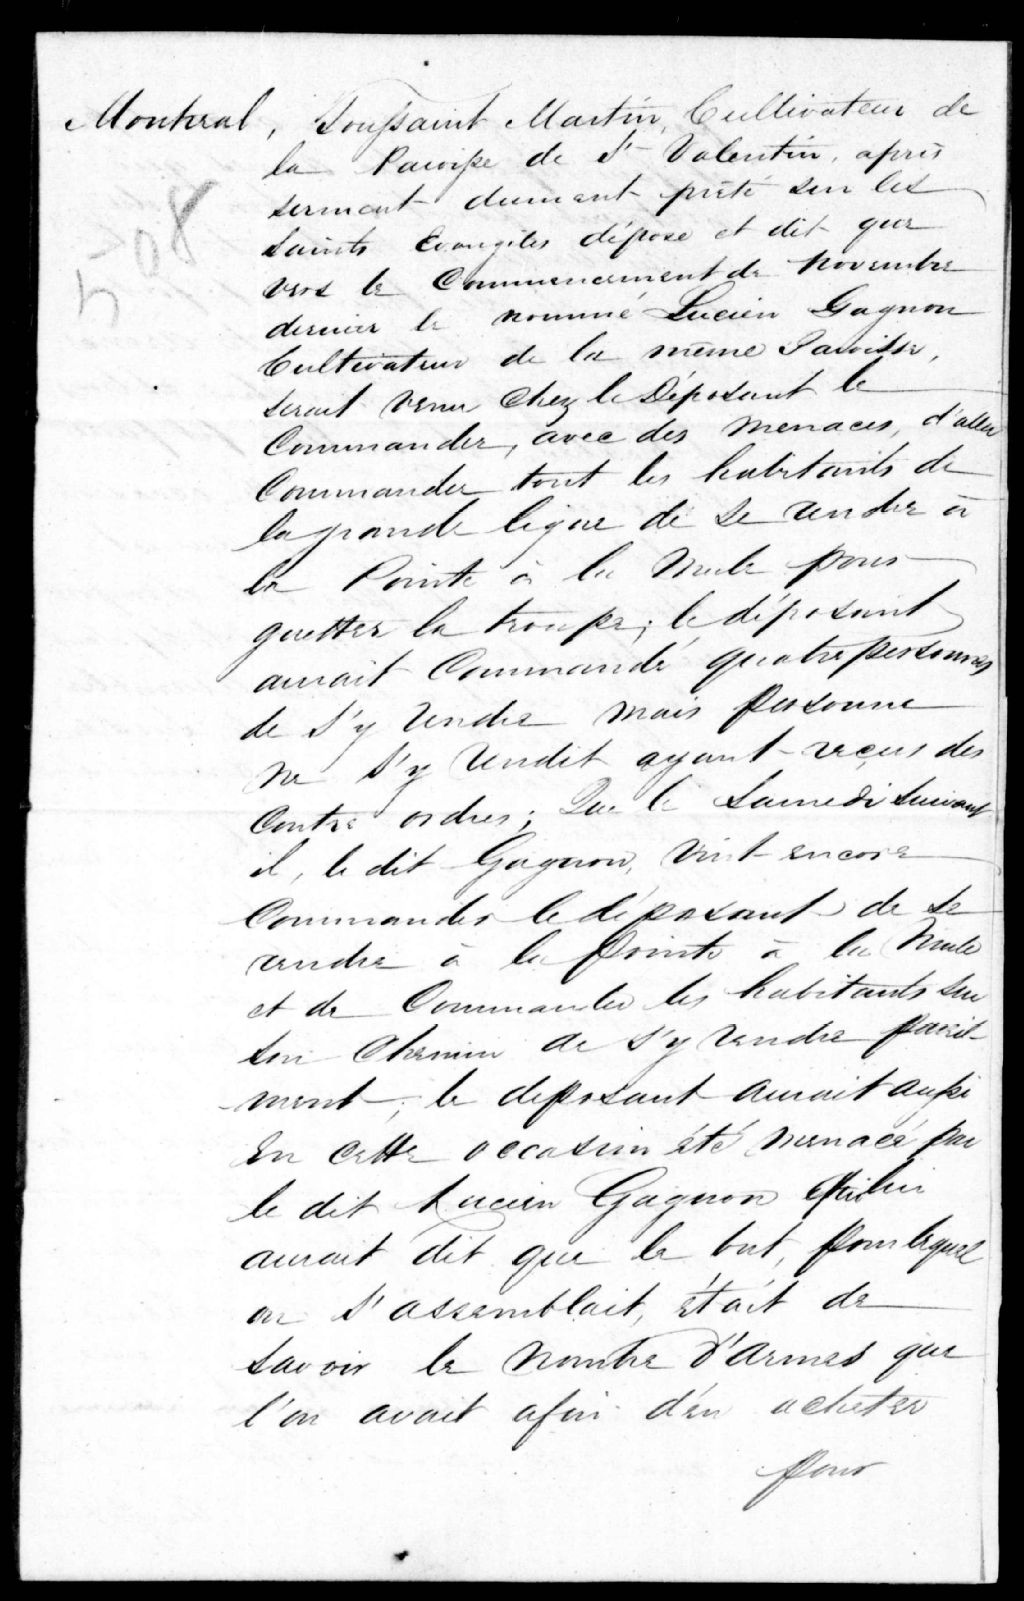 Montreal, Toussaint Martin, Cultivateur de
la Paroisse de St Valentin, après
serment dument prêté sur les
Saints Evangiles dépose et dit que
vers le Commencement de Novembre
dernier le nommé Lucien Gagnon
Cultivateur de la même Paroisse,
serait venu chez le Déposant le
Commander, avec des menaces, d'aller
Commander tout les habitants de
la grande ligne de se rendre à
la Pointe à la Mule pour
guetter la troupe; le déposant
aurait Commandé quatre personnes
de s'y rendre mais personne
ne s'y rendit ayant reçus des
Contre ordres; Que le Samedi suivant
il, le dit Gagnon, vint encore
Commander le déposant de se
rendre à la Pointe à la Mule
et de Commander les habitants sur
son Chemin de s'y rendre pareil-
ment; le deposant aurait aussi
en cette occasion été menacé par
le dit Lucien Gagnon qui lui
aurait dit que le but, pour lequel
on s'assemblait, était de
savoir le nombre d'armes que
l'on avait afin d'en acheter
pour
508